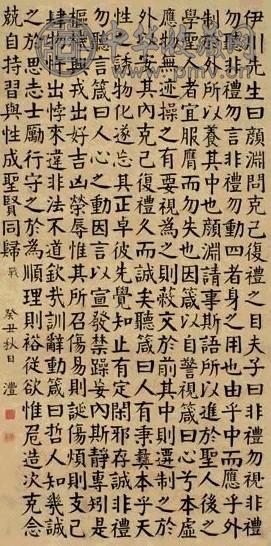 伊川先生曰顏淵問克己復禮之目夫子曰非禮勿視非禮
勿聽非禮勿言非禮勿動四者身之用也由乎中而應乎外
制於外所以養其中也顏淵請事斯語所以進於聖人後之
學聖人者宜服膺而勿失也因箴以自警視箴曰心兮本虛
應物無迹操之有要視為之則蔽交於前其中則遷制之於
外以安其內克己復禮久而誠矣聽箴曰人有秉彝本乎天
性知誘物化遂忘其正卓彼先覺知止有定閑邪存誠非禮
勿聽言箴曰人心之動因言以宣發禁躁妄內斯靜專矧是
樞機興戎出好吉凶榮辱惟其所召傷易則誕傷煩則支己
肆物忤出悖來違非法不道欽哉訓辭動箴曰哲人知幾誠
之於思志士勵行守之於為順理則裕從欲惟危造次克念
兢自持習與性成聖賢同歸 戰 癸丑秋日 澧